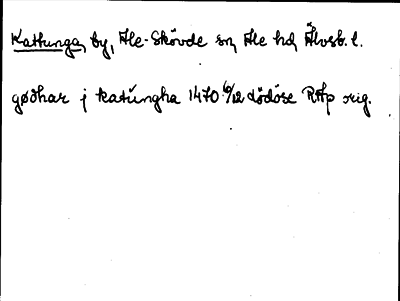 Kattunga, by, Ale-Skövde sn, Ale hd, Älvsb. l.
gøдhar j katúngha 1470 6/12 Lödöse RAp orig.